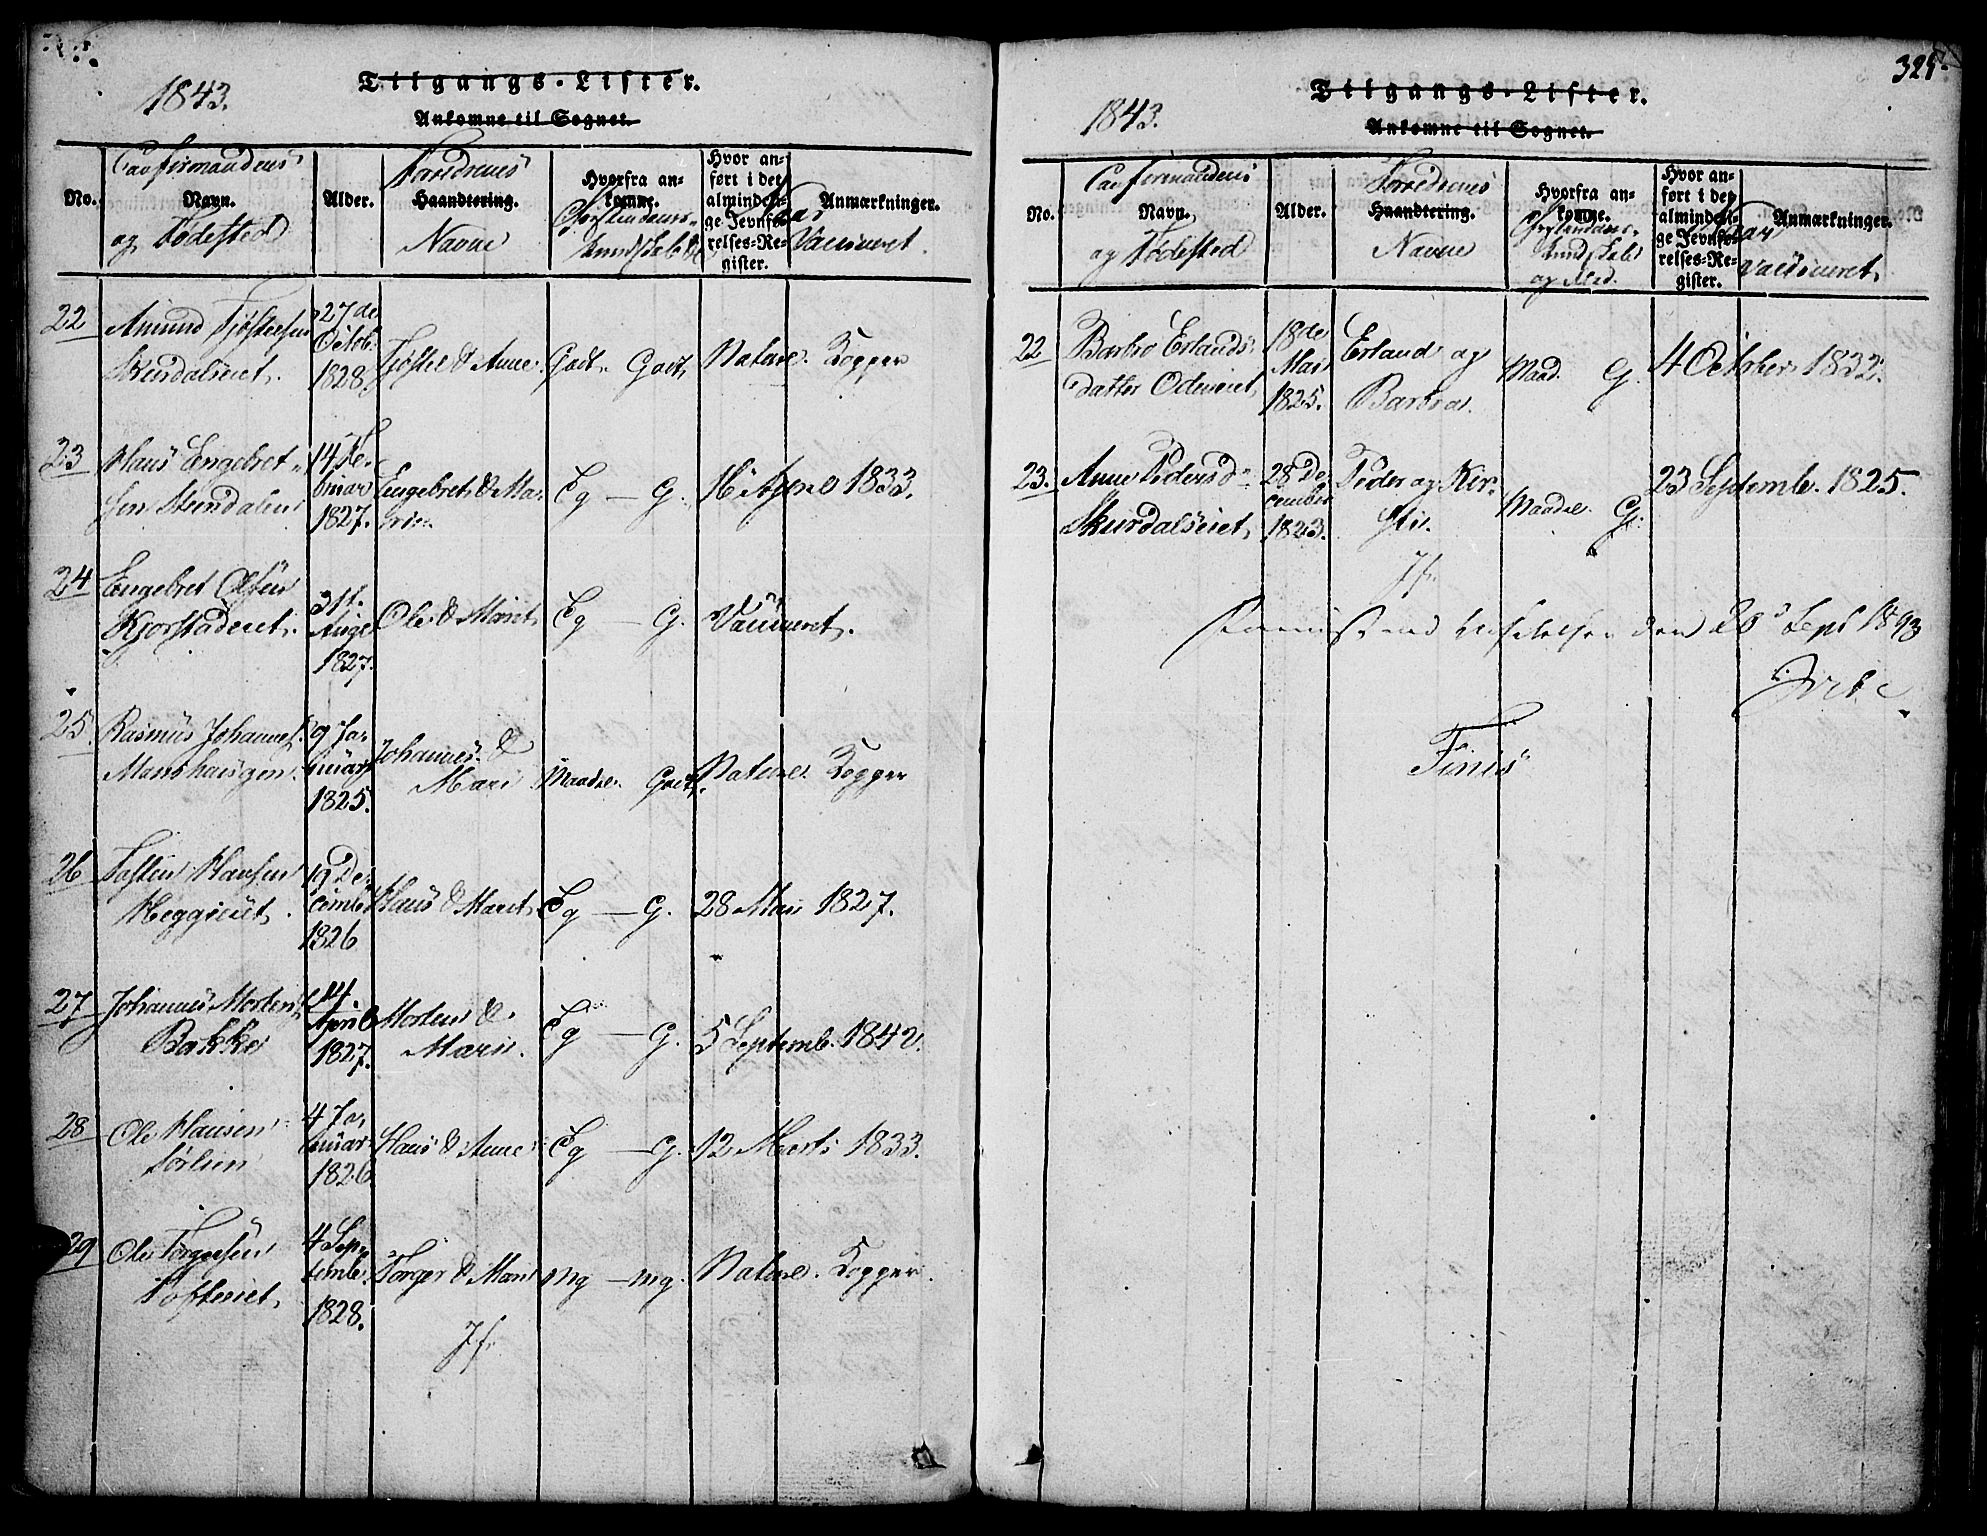 1843.
Tilgangs-Lister.
Ankomne til Sognet.
Confirmandens
No.
Navn.
og Fødested
Alder.
Forældrenes
Haandtering.
Navne
Hvorfra an-
komne.
Christendoms-
Kundskab &
Hvor an-
ført i det
almindeli-
ge Jevnfø-
relses-Re-
gister.
Naar
Vaccineret.
Anmærkninger.
22
Amund Tjøstelsen
Skurdalseiet.
27de
Octob.
1828
Tjøstel & Anne.
Godt. Godt.
Naturl. Kopper
23
Hans Engebret-
sen Steindalen
14 Fe-
bruar
1827.
Engebret & Ma-
rie.
Tg — G.
16 April 1833.
24
Engebret Olsen
Kjorstadeiet.
31te
Aug
1827.
Ole & Marit
Tg — G.
Vaccineret.
25
Rasmus Johannes.
9 Ja-
nuar
1825.
Johannes &
Mari
Maadel. Godt.
Naturl. Kopper
26
Tosten Hansen
Heggeeiet.
19 De-
cember
1826
Hans & Marit
Tg — G.
28 Mai 1827.
27
Johannes Mortens.
Bakke
14.
April
1827.
Morten &
Mari.
Tg — G.
5 Septemb. 1842.
28
Ole Hansen
Sørlien
4 Ja-
nuar
1826.
Hans & Anne
Tg — G.
12 Marts 1833.
29
Ole Torgersen
Tofteeiet.
4 Sep-
tember
1828.
Torger & Mari
mg — mg.
Naturl. Kopper.
1843.
Tilgangs-Lister.
Ankomne til Sognet.
325.
Confirmandens
No.
Navn.
og Fødested
Alder.
Forældrenes
Haandtering.
Navne
Hvorfra an-
komne.
Christendoms-
Kundskab
og Flid.
Hvor an-
ført i det
almindeli-
ge Jevnfø-
relses-Re-
gister.
Naar
Vaccineret.
Anmærkninger.
22
Barbro Erlands-
datter Odeneiet
18de
Mai
1825.
Erland og
Barbro.
Maad. G.
4 October 1832.
23.
Anne Pedersd
Skurdalseiet
28 De-
cember
1823.
Peder og Kir-
sti.
Maadel. G.
23 Septemb. 1825.
den 20 Sept 1843
Finis